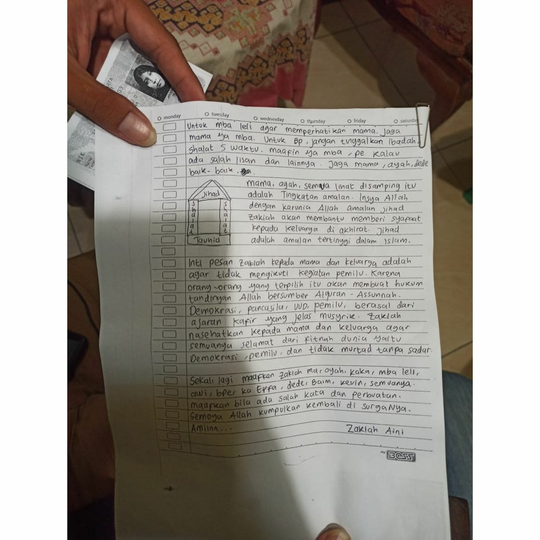 monday tuesday wednesday thursday friday saturday
Untuk mba leli agar memperhatikan mama. Jaga
mama ya mba. Untuk BP, jangan tinggalkan Ibadah
shalat 5 waktu. maafin ya mba, pe kalau
ada salah lisan dan lainnya. Jaga mama, ayah, dede
baik-baik.
mama, ayah, semua lihat disamping itu
adalah Tingkatan amalan. Insya Allah
dengan karunia Allah amalan jihad
zakiah akan membantu memberi syafaat
kepada keluarga di akhirat. jihad
adalah amalan tertinggi dalam islam.
Jihad
Shalat
Shalat
Tauhid
Inti pesan zakiah kepada mama dan keluarga adalah
agar tidak mengikuti kegiatan pemilu. Karena
orang-orang yang terpilih itu akan membuat hukum
tandingan Allah bersumber Alquran-Assunnah.
Demokrasi, pancasila, UUD, pemilu, berasal dari
ajaran kafir yang jelas musyrik. zakiah
nasehatkan kepada mama dan keluarga agar
semuanya selamat dari fitnah dunia yaitu
Demokrasi, pemilu, dan tidak murtad tanpa sadar
Sekali lagi maafkan zakiah ma, ayah, kaka, mba leli,
bpe, ka Erfa, dede Baim, kevin, semuanya.
maafkan bila ada salah kata dan perbuatan.
Semoga Allah kumpulkan kembali di surgaNya.
Amiinn...
Zakiah Aini